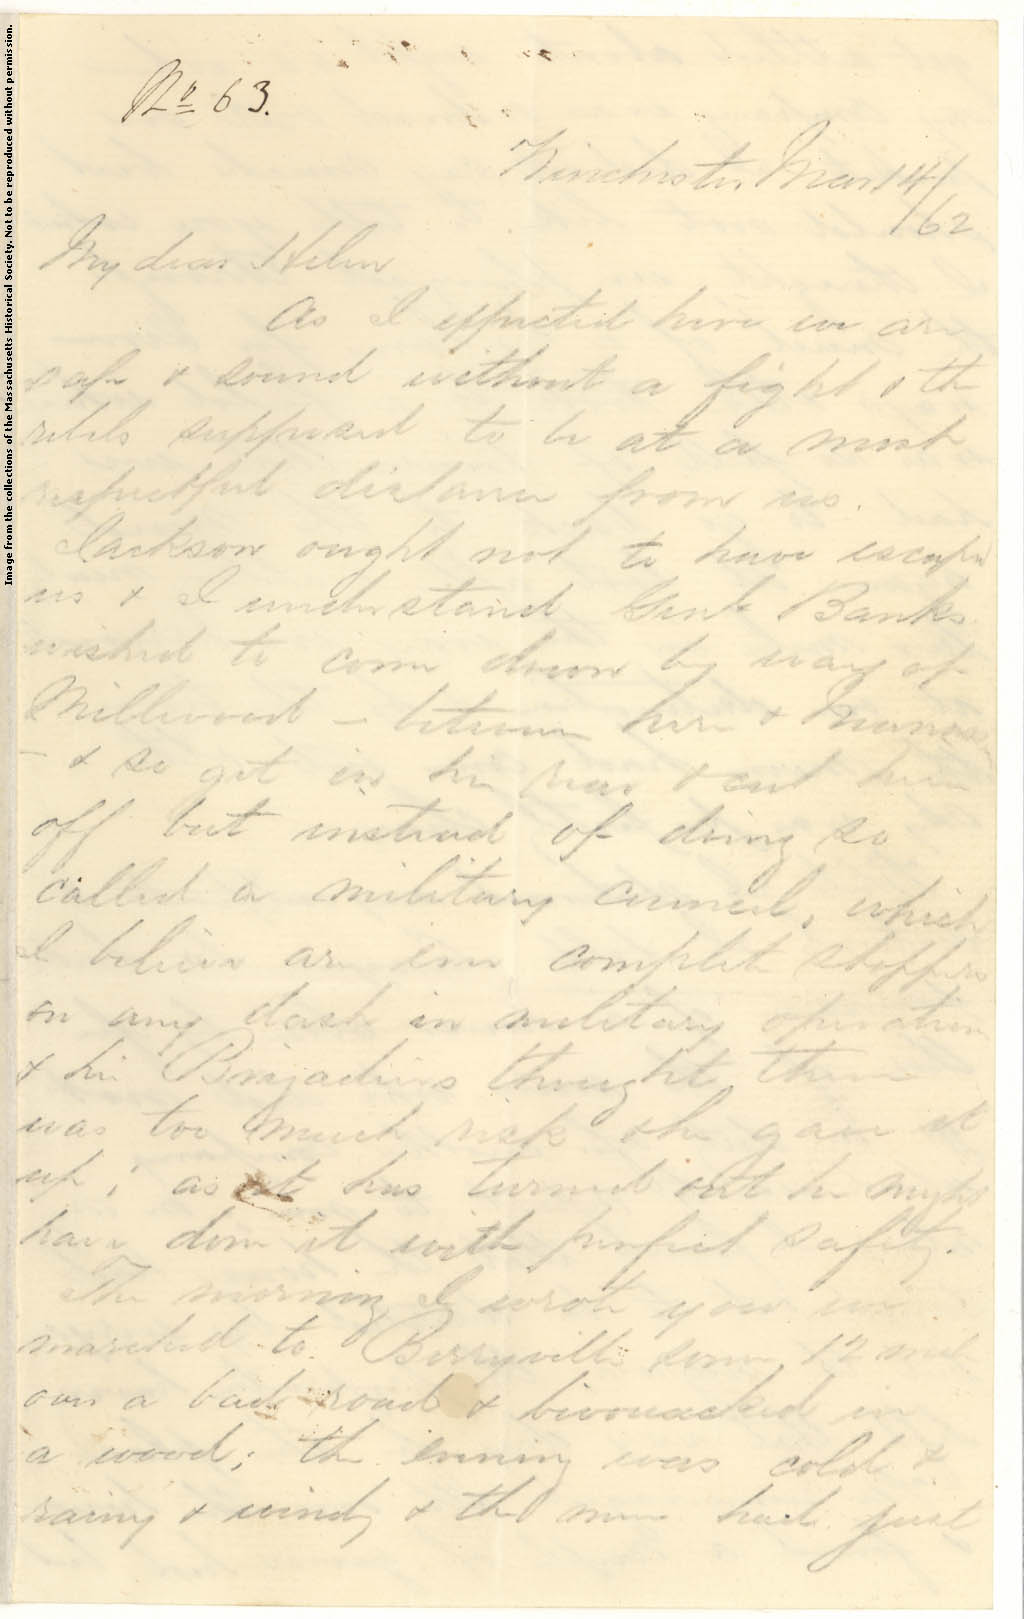 Image from the collections of the Massachusetts Historical Society. Not to be reproduced without permission.
No 63.
Winchester Mar 14/
/62
My dear Helen
As I expected here we are
safe & sound without a fight & the
rebels supposed to be at a most
respectful distance from us.
Jackson ought not to have escaped
us & I understand Genl. Banks
wished to come down by way of
Millwood – between here & Manassas
– & so get in his rear & cut him
off but instead of doing so
called a military council, which
I believe are ever complete stoppers
on any dash in military operations
& his Brigadiers thought there
was too much risk & he gave it
up; as it has turned out he might
have done it with perfect safety.
The morning I wrote you we
marched to Berryville some 12 miles
over a bad road & bivouacked in
a wood; the evening was cold &
rainy & windy & the men had just